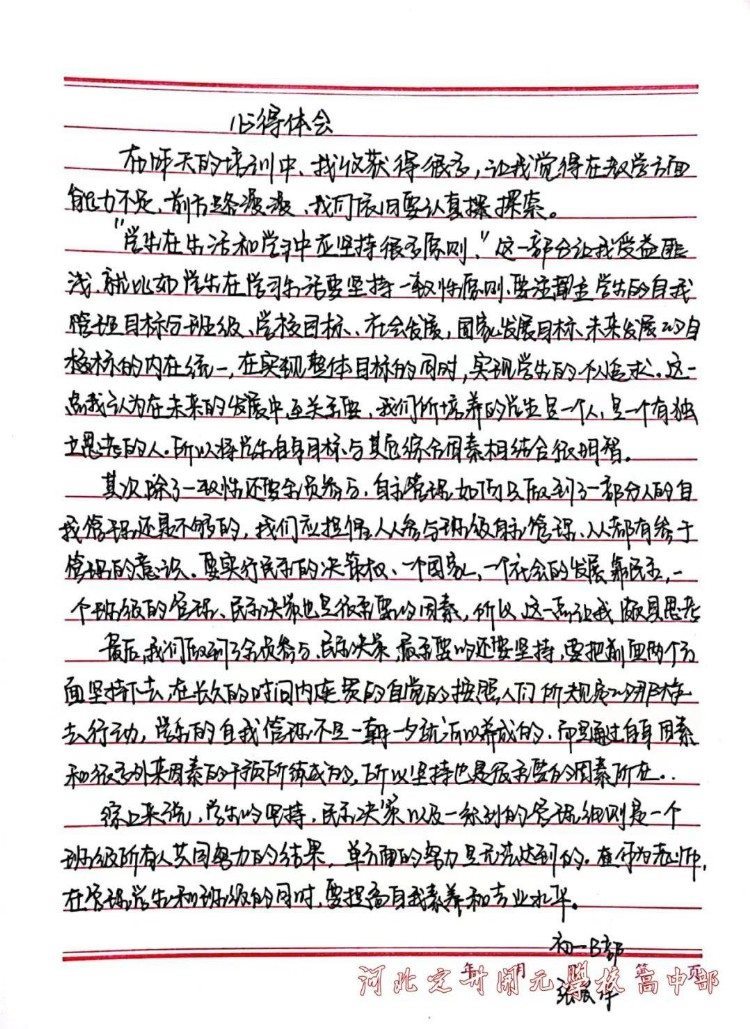 心得体会
在昨天的培训中、我收获得很多，让我觉得在教学方面
能力不足，前方路漫漫、我们依旧要认真探索。
"学生在生活和学习中应坚持很多原则，"这一部分让我受益匪
浅，就比如学生在学习生活要坚持一致性原则，要注重学生的自我
管理目标与班级、学校目标、社会发展，国家发展目标、未来发展的目
标的内在统一，在实现整体目标的同时，实现学生的个人追求。这一
点我认为在未来的发展中至关重要，我们所培养的学生是一个人，是一个有独
立思考的人。所以将学生自身目标与其它综合因素相结合很明智。
其次除了一致性还要全员参与，自主管理，如何只做到了一部分人的自
我管理还是不够的，我们应提倡人人参与班级自主管理、人人都有参于
管理的意识。要实行民主的决策权、一个国家，一个社会的发展靠民主，一
个班级的管理、民主决策也是很重要的因素，所以这一点让我颇具思考
最后，我们做到了全员参与、民主决策 最重要的还要坚持，要把前面两个方
面坚持下去，在长久的时间内连贯的自觉的按照人们所规定的那样
去行动，学生的自我管理不是一朝一夕就可以养成的，而是通过自身因素
和很多外来因素的干预所练成的，所以坚持也是很重要的因素所在..
综上来说，学生的坚持，民主决策以及一系列的管理细则是一个
班级所有人共同努力的结果，单方面的努力是无法达到的。在作为老师，
在管理学生和班级的同时，要提高自我素养和专业水平。
初一B部
年 月
河北定州开元学校高中部